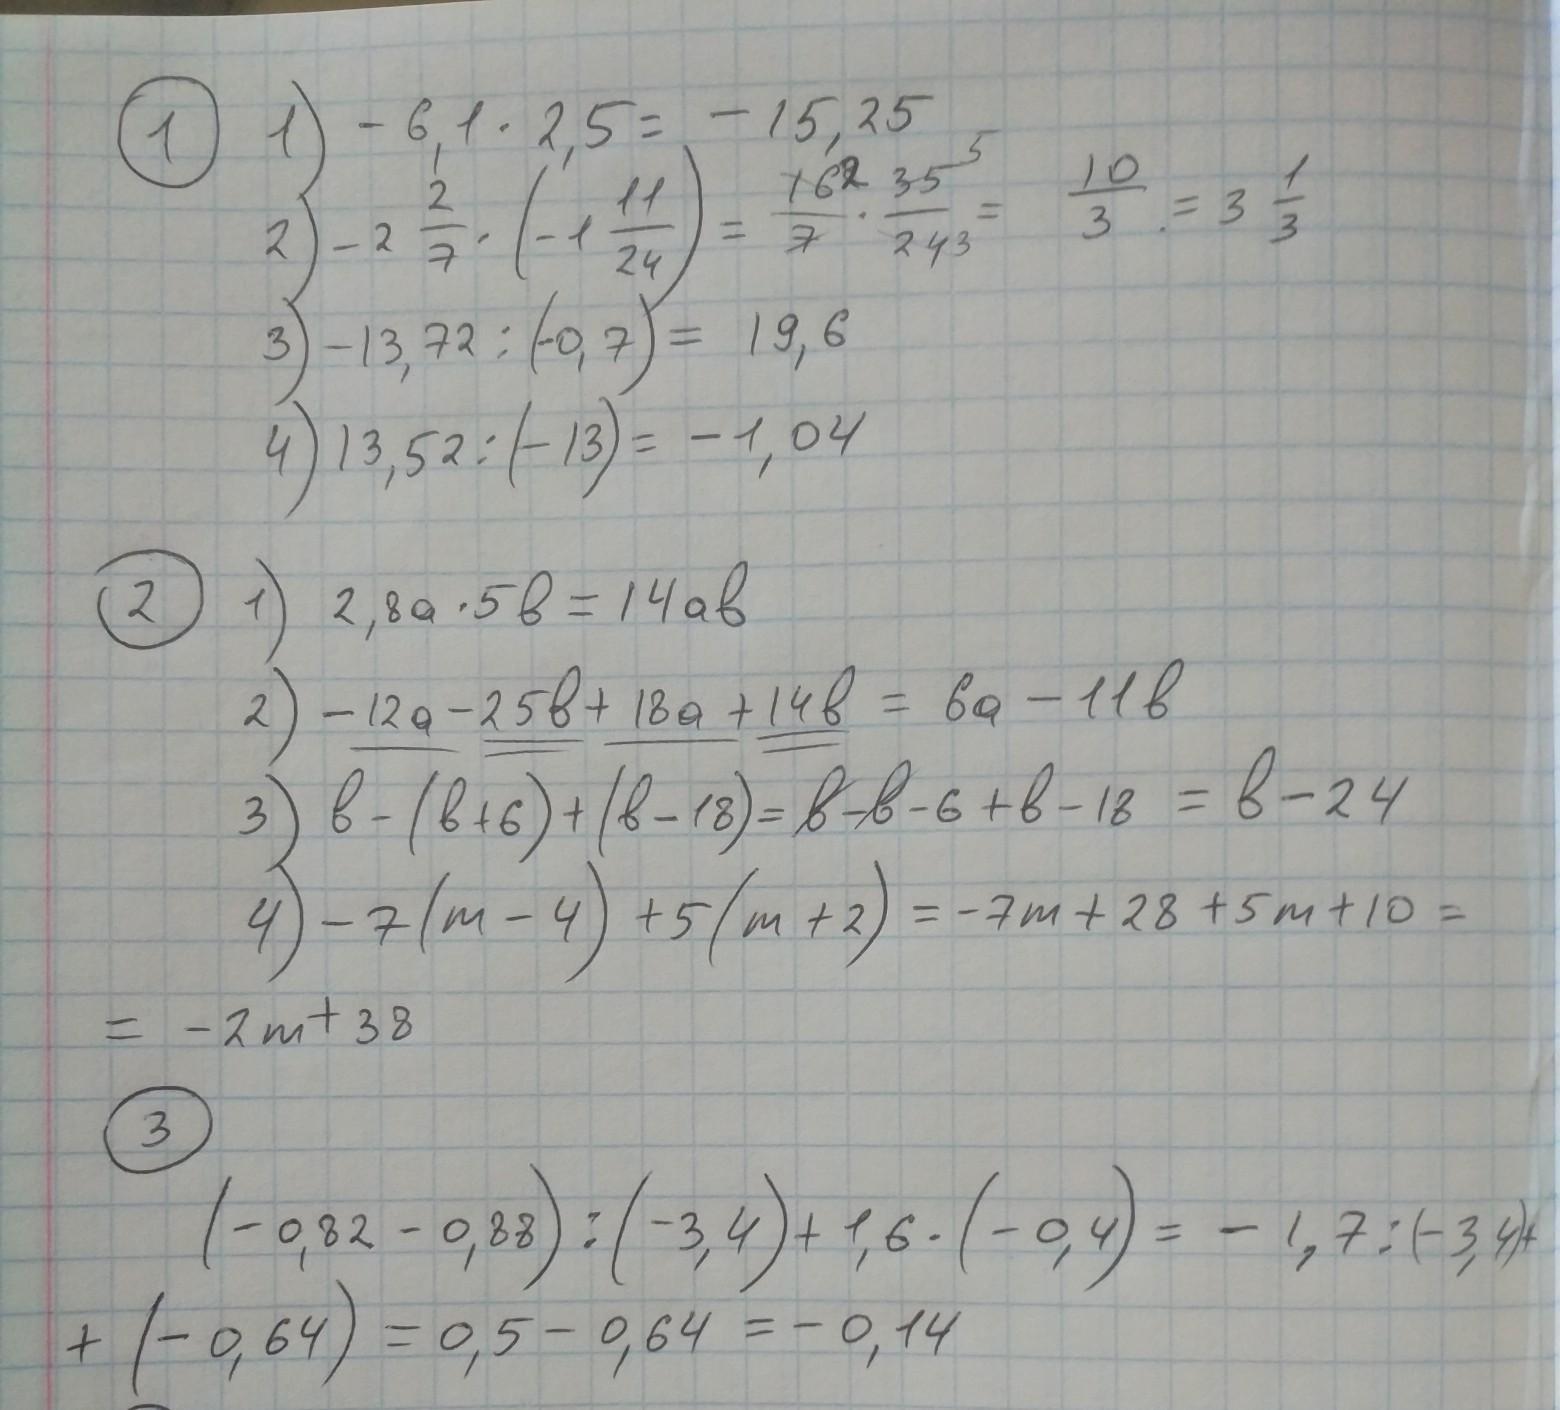 1 1) - 6,1 · 2,5 = - 15,25
2) - 2 2/7 · (- 1 11/24) = 16 2/7 · 35 5/24 3 = 10/3 . = 3 1/3
3) - 13,72 : (-0,7) = 19,6
4) 13,52 : (- 13) = - 1,04
2 1) 2,8a · 5в = 14ав
2) - 12a - 25в + 18a + 14в = 6a - 11в
3) в - (в + 6) + (в - 18) = в - в - 6 + в - 18 = в - 24
4) - 7 (m - 4) + 5 (m + 2) = - 7m + 28 + 5m + 10 =
= - 2m + 38
3
(- 0,82 - 0,88) : (- 3,4) + 1,6 · (- 0,4) = - 1,7 : (- 3,4) +
+ (- 0,64) = 0,5 - 0,64 = - 0,14